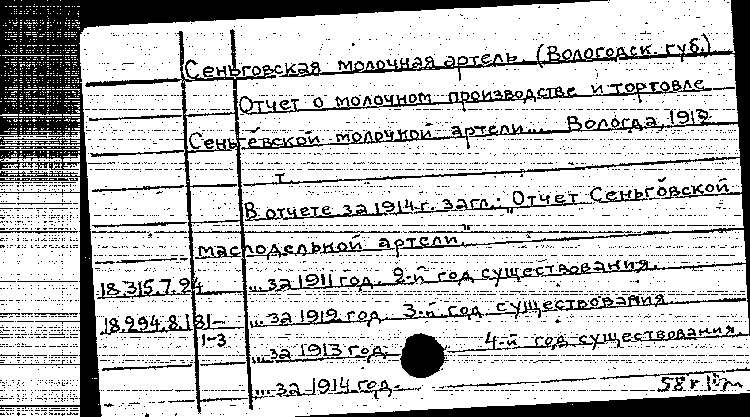 Сеньговская молочная артель (Вологодск. губ.)
Отчет о молочном производстве и торговле
Сеньговской молочной артели... Вологда, 1912
т.
В отчете за 1914 г. загл.: "Отчет Сеньговской
маслодельной артели."
18.315.7.24 ...за 1911 год. 2-й год существования.
18.294.8.181- ...за 1912 год. 3-й год существования
1-3
...за 1913 год. 4-й год существования
...за 1914 год.-